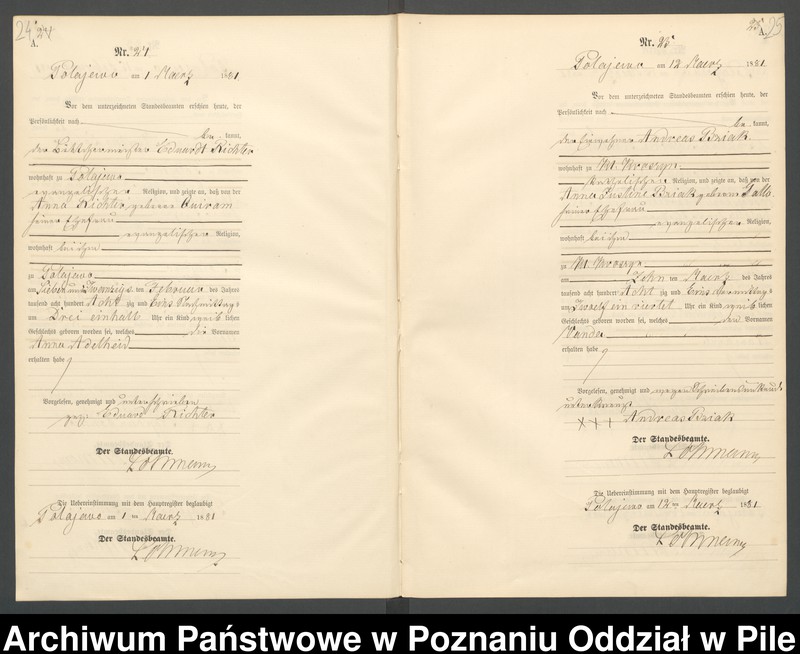 24 24
A.
Nr. 24
Polajewo am 1 Maerz 1881
Vor dem unterzeichneten Standesbeamten erschien heute, der
Persönlichkeit nach
be kannt,
der Böttchermeister Eduardt Richter
wohnhaft zu Polajewo
evangelischer Religion, und zeigte an, daß von der
Anna Richter geborene Quiram
seiner Ehefrau
evangelischer Religion,
wohnhaft bei ihm
zu Polajewo
am Sieben und Zwanzigs ten Februar des Jahres
tausend acht hundert Acht zig und Eins Nachmittags
um Drei einhalb Uhr ein Kind weib lichen
Geschlechts geboren worden sei, welches die Vornamen
Anna Adelheid
erhalten habe
Vorgelesen, genehmigt und unterschrieben
gez. Eduard Richter
Der Standesbeamte.
Die Uebereinstimmung mit dem Hauptregister beglaubigt
Polajewo am 1 ten Maerz 1881
Der Standesbeamte.
25 25
A.
Nr. 25
Polajewo am 12 Maerz 1881.
Vor dem unterzeichneten Standesbeamten erschien heute, der
Persönlichkeit nach
be kannt,
der Einwohner Andreas Bziak
wohnhaft zu
katholischer Religion, und zeigte an, daß von der
Anna Justine Bziak geborene
seiner Ehefrau
evangelischer Religion,
wohnhaft bei ihm
zu
am Zehn ten Maerz des Jahres
tausend acht hundert Acht zig und Eins Vormittags
um Zwoelf ein viertel Uhr ein Kind weib lichen
Geschlechts geboren worden sei, welches den Vornamen
Wanda
erhalten habe
Vorgelesen, genehmigt und wegen Schreibensunkunde
unterkreuzt
+++ Andreas Bziak
Der Standesbeamte.
Die Uebereinstimmung mit dem Hauptregister beglaubigt
Polajewo am 12 ten Maerz 1881
Der Standesbeamte.
Archiwum Państwowe w Poznaniu Oddział w Pile